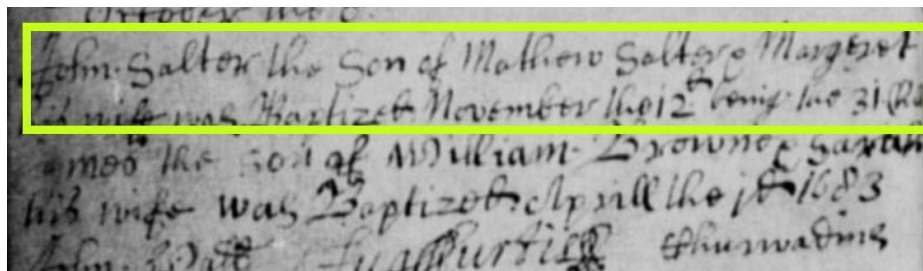 October the 8
John Salter the Son of Mathew Salter & Margeret
his wife was Baptized November the 12th being the 31
James the Son of William Browne & Sarah
his wife was Baptized Aprill the 1st 1683
John